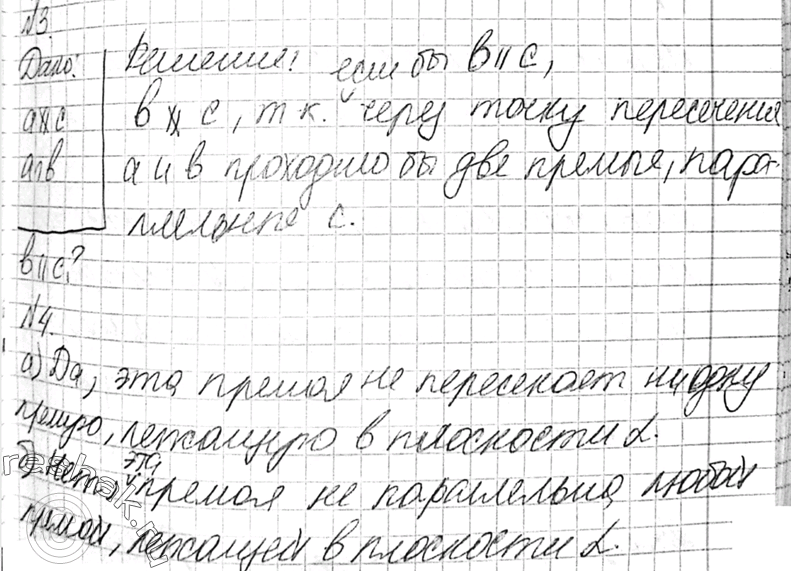 №3
Дано: Решение: если бы в || с,
а || с в ∦ с, т к. через точку пересечения
а ∩ в а и в проходило бы две прямые, пара-
ллельные с.
в || с?
№4.
а) Да, эта прямая не пересекает ни одну
прямую, лежащую в плоскости α.
б) Нет, эта прямая не параллельна любой
прямой, лежащей в плоскости α.
reshak.ru